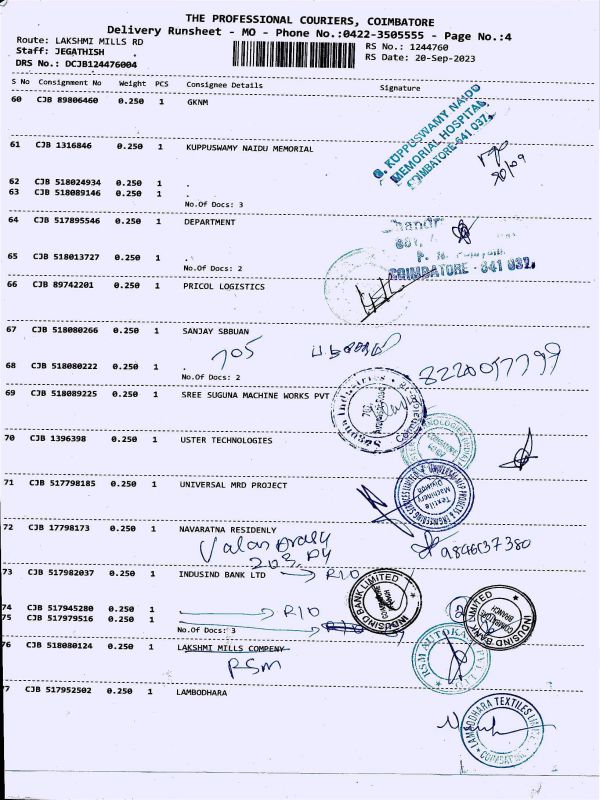 THE PROFESSIONAL COURIERS, COIMBATORE
Delivery Runsheet - MO - Phone No.:0422-3505555 - Page No.:4
Route: LAKSHMI MILLS RD
RS No.: 1244760
Staff: JEGATHISH
RS Date: 20-Sep-2023
DRS No.: DCJB124476004
S No Consignment No Weight PCS Consignee Details Signature
60 CJB 89806460 0.250 1 GKNM
G. KUPPUSWAMY NAIDU
MEMORIAL HOSPITAL
COIMBATORE-641 037.
61 CJB 1316846 0.250 1 KUPPUSWAMY NAIDU MEMORIAL
20/09
62 CJB 518024934 0.250 1 .
63 CJB 518089146 0.250 1 .
No.Of Docs: 3
64 CJB 517895546 0.250 1 DEPARTMENT
COIMBATORE - 641 037.
65 CJB 518013727 0.250 1 .
No.Of Docs: 2
66 CJB 89742201 0.250 1 PRICOL LOGISTICS
67 CJB 518080266 0.250 1 SANJAY SBBUAN
705
68 CJB 518080222 0.250 1 .
No.Of Docs: 2
69 CJB 518089225 0.250 1 SREE SUGUNA MACHINE WORKS PVT
70 CJB 1396398 0.250 1 USTER TECHNOLOGIES
71 CJB 517798185 0.250 1 UNIVERSAL MRD PROJECT
Textile
Machinery
Division
72 CJB 17798173 0.250 1 NAVARATNA RESIDENLY
73 CJB 517982037 0.250 1 INDUSIND BANK LTD R10
INDUSIND BANK LIMITED
74 CJB 517945280 0.250 1 R10
75 CJB 517979516 0.250 1
INDUSIND BANK LIMITED
COIMBATORE
BRANCH
No.Of Docs: 3
76 CJB 518080124 0.250 1 LAKSHMI MILLS COMPENY
RSM
77 CJB 517952502 0.250 1 LAMBODHARA
LAMBODHARA TEXTILES LIMITED
COIMBATORE